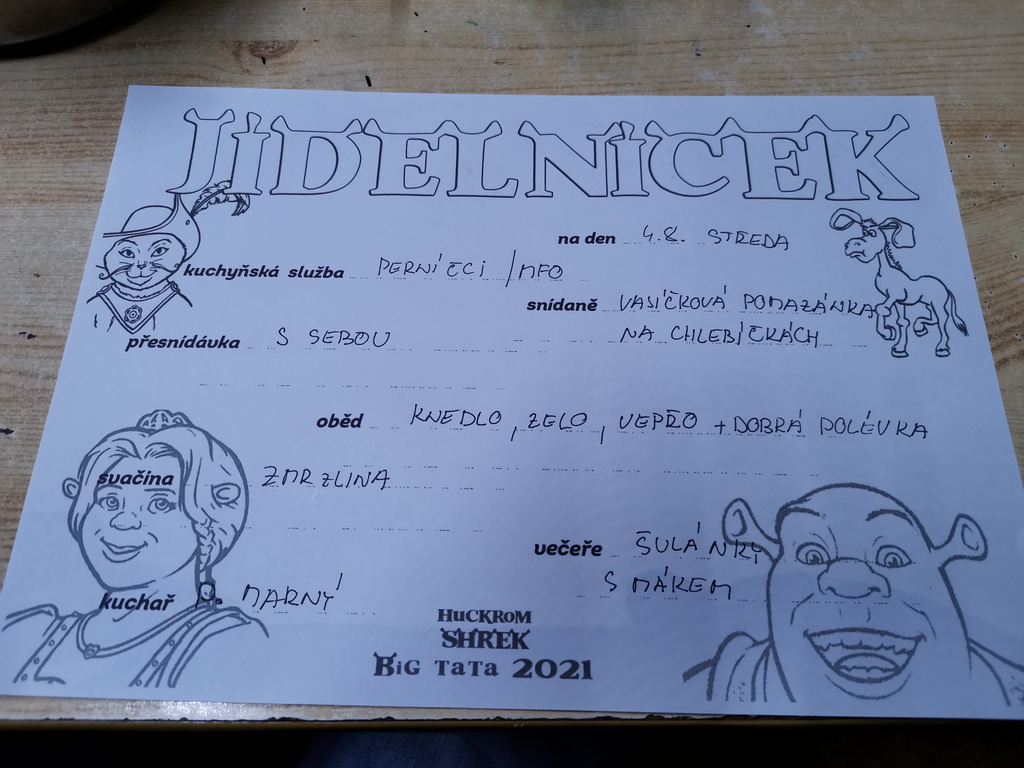 JÍDELNÍČEK
na den 4.8. STŘEDA
kuchyňská služba PERNÍČCI / MFO
snídaně VAJÍČKOVÁ POMAZÁNKA
přesnídávka S SEBOU NA CHLEBÍČKÁCH
oběd KNEDLO, ZELO, VEPŘO + DOBRÁ POLÉVKA
svačina ZMRZLINA
večeře ŠULÁNKY
S MÁKEM
kuchař MARNÝ
HUCKROM
SHREK
BiG TaTa 2021